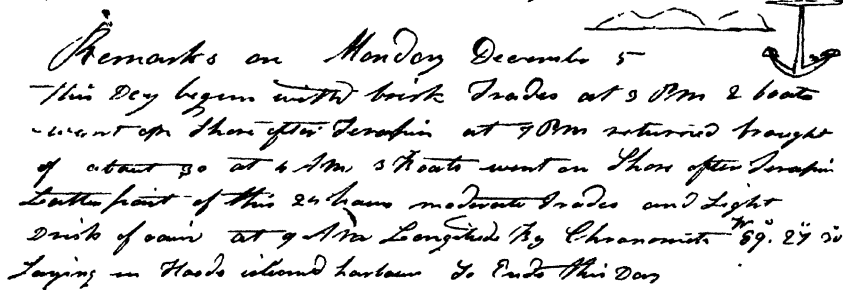 Remarks on Monday December 5
This Day begins with brisk Trades at 3 PM 2 boats
went on Shore after Terapin at 7 PM returned brought
of about 30 at 4 AM 3 Boats went on Shore after Terapin
Latter part of this 24 hours moderate Trades and Light
Drisk of rain at 9 AM Longitude By Chronomete W 89° 27" 30
Laying in Hoods island harbour So Ends this Day